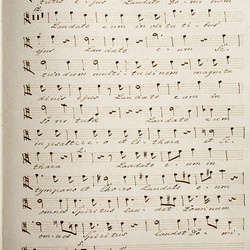 tutis ejus Laudate Dominum
Laudate eum in virtutibus
ejus Laudate eum Se-
cundum multitudinem magnitu
dinis ejus Laudate eum in
Sono tubæ Laudate eum
in psalterio et cithara et Ci-
thara Laudate eum in
tympano et Choro Laudate eum
omnis Spiritus laudet Dominum
omnis Spiritus Laudet Domi-